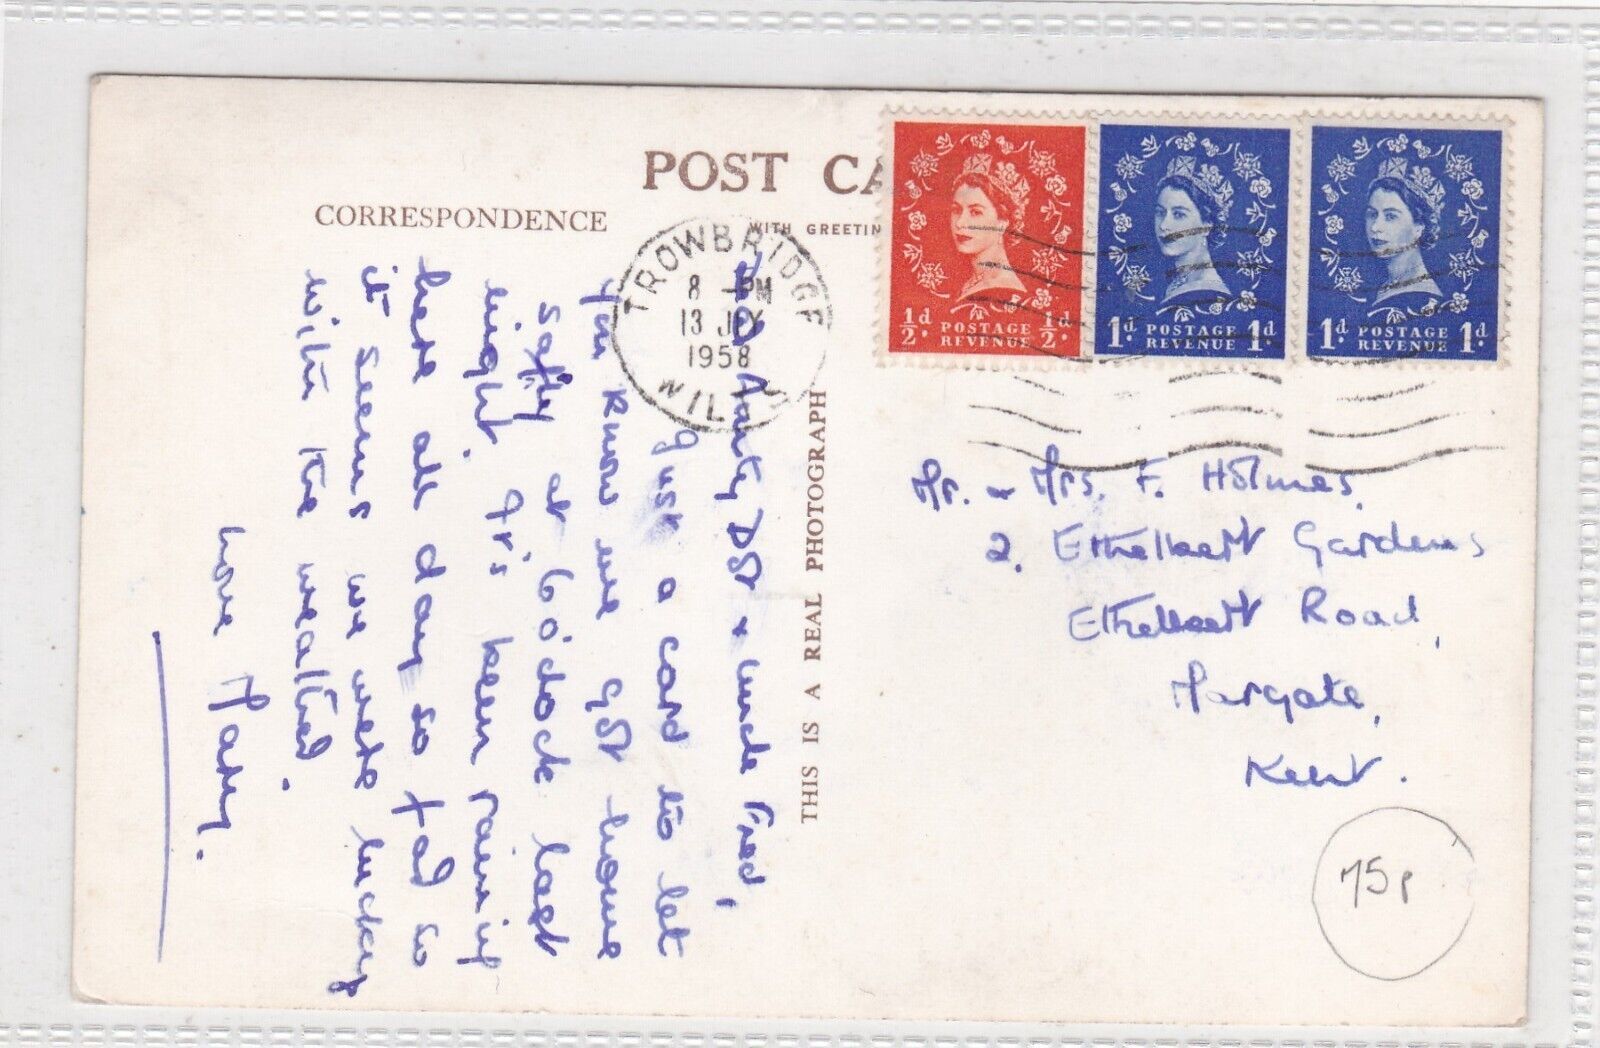 POST CA
CORRESPONDENCE
WITH GREETIN
TROWBRIDGE
8 - PM
13 JLY
1958
WILTS
½d. POSTAGE ½d.
REVENUE
1d. POSTAGE 1d.
REVENUE
1d. POSTAGE 1d.
REVENUE
THIS IS A REAL PHOTOGRAPH
Aunty Dot + Uncle Fred,
Just a card to let
you know we got home
safely at 6 o'clock last
night. It's been raining
here all day so far so
it seems we were lucky
with the weather.
Love Mary.
Mr. + Mrs. F. Holmes,
2, Ethelbert Gardens
Ethelbert Road,
Margate,
Kent.
75p